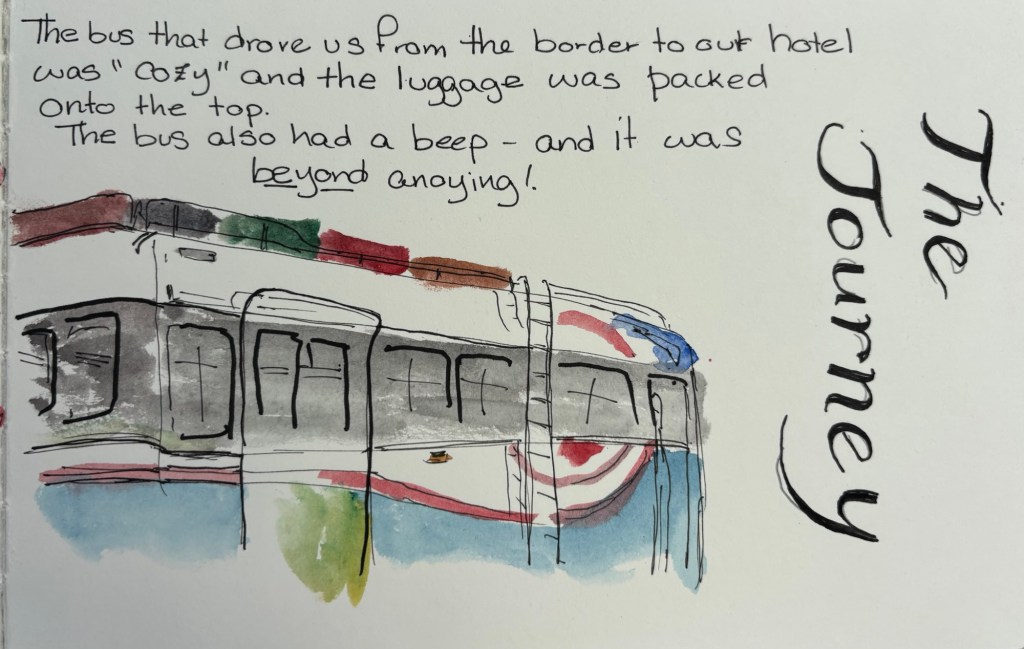 The bus that drove us from the border to our hotel
was "cozy" and the luggage was packed
onto the top.
The bus also had a beep - and it was
beyond anoying!
The
Journey